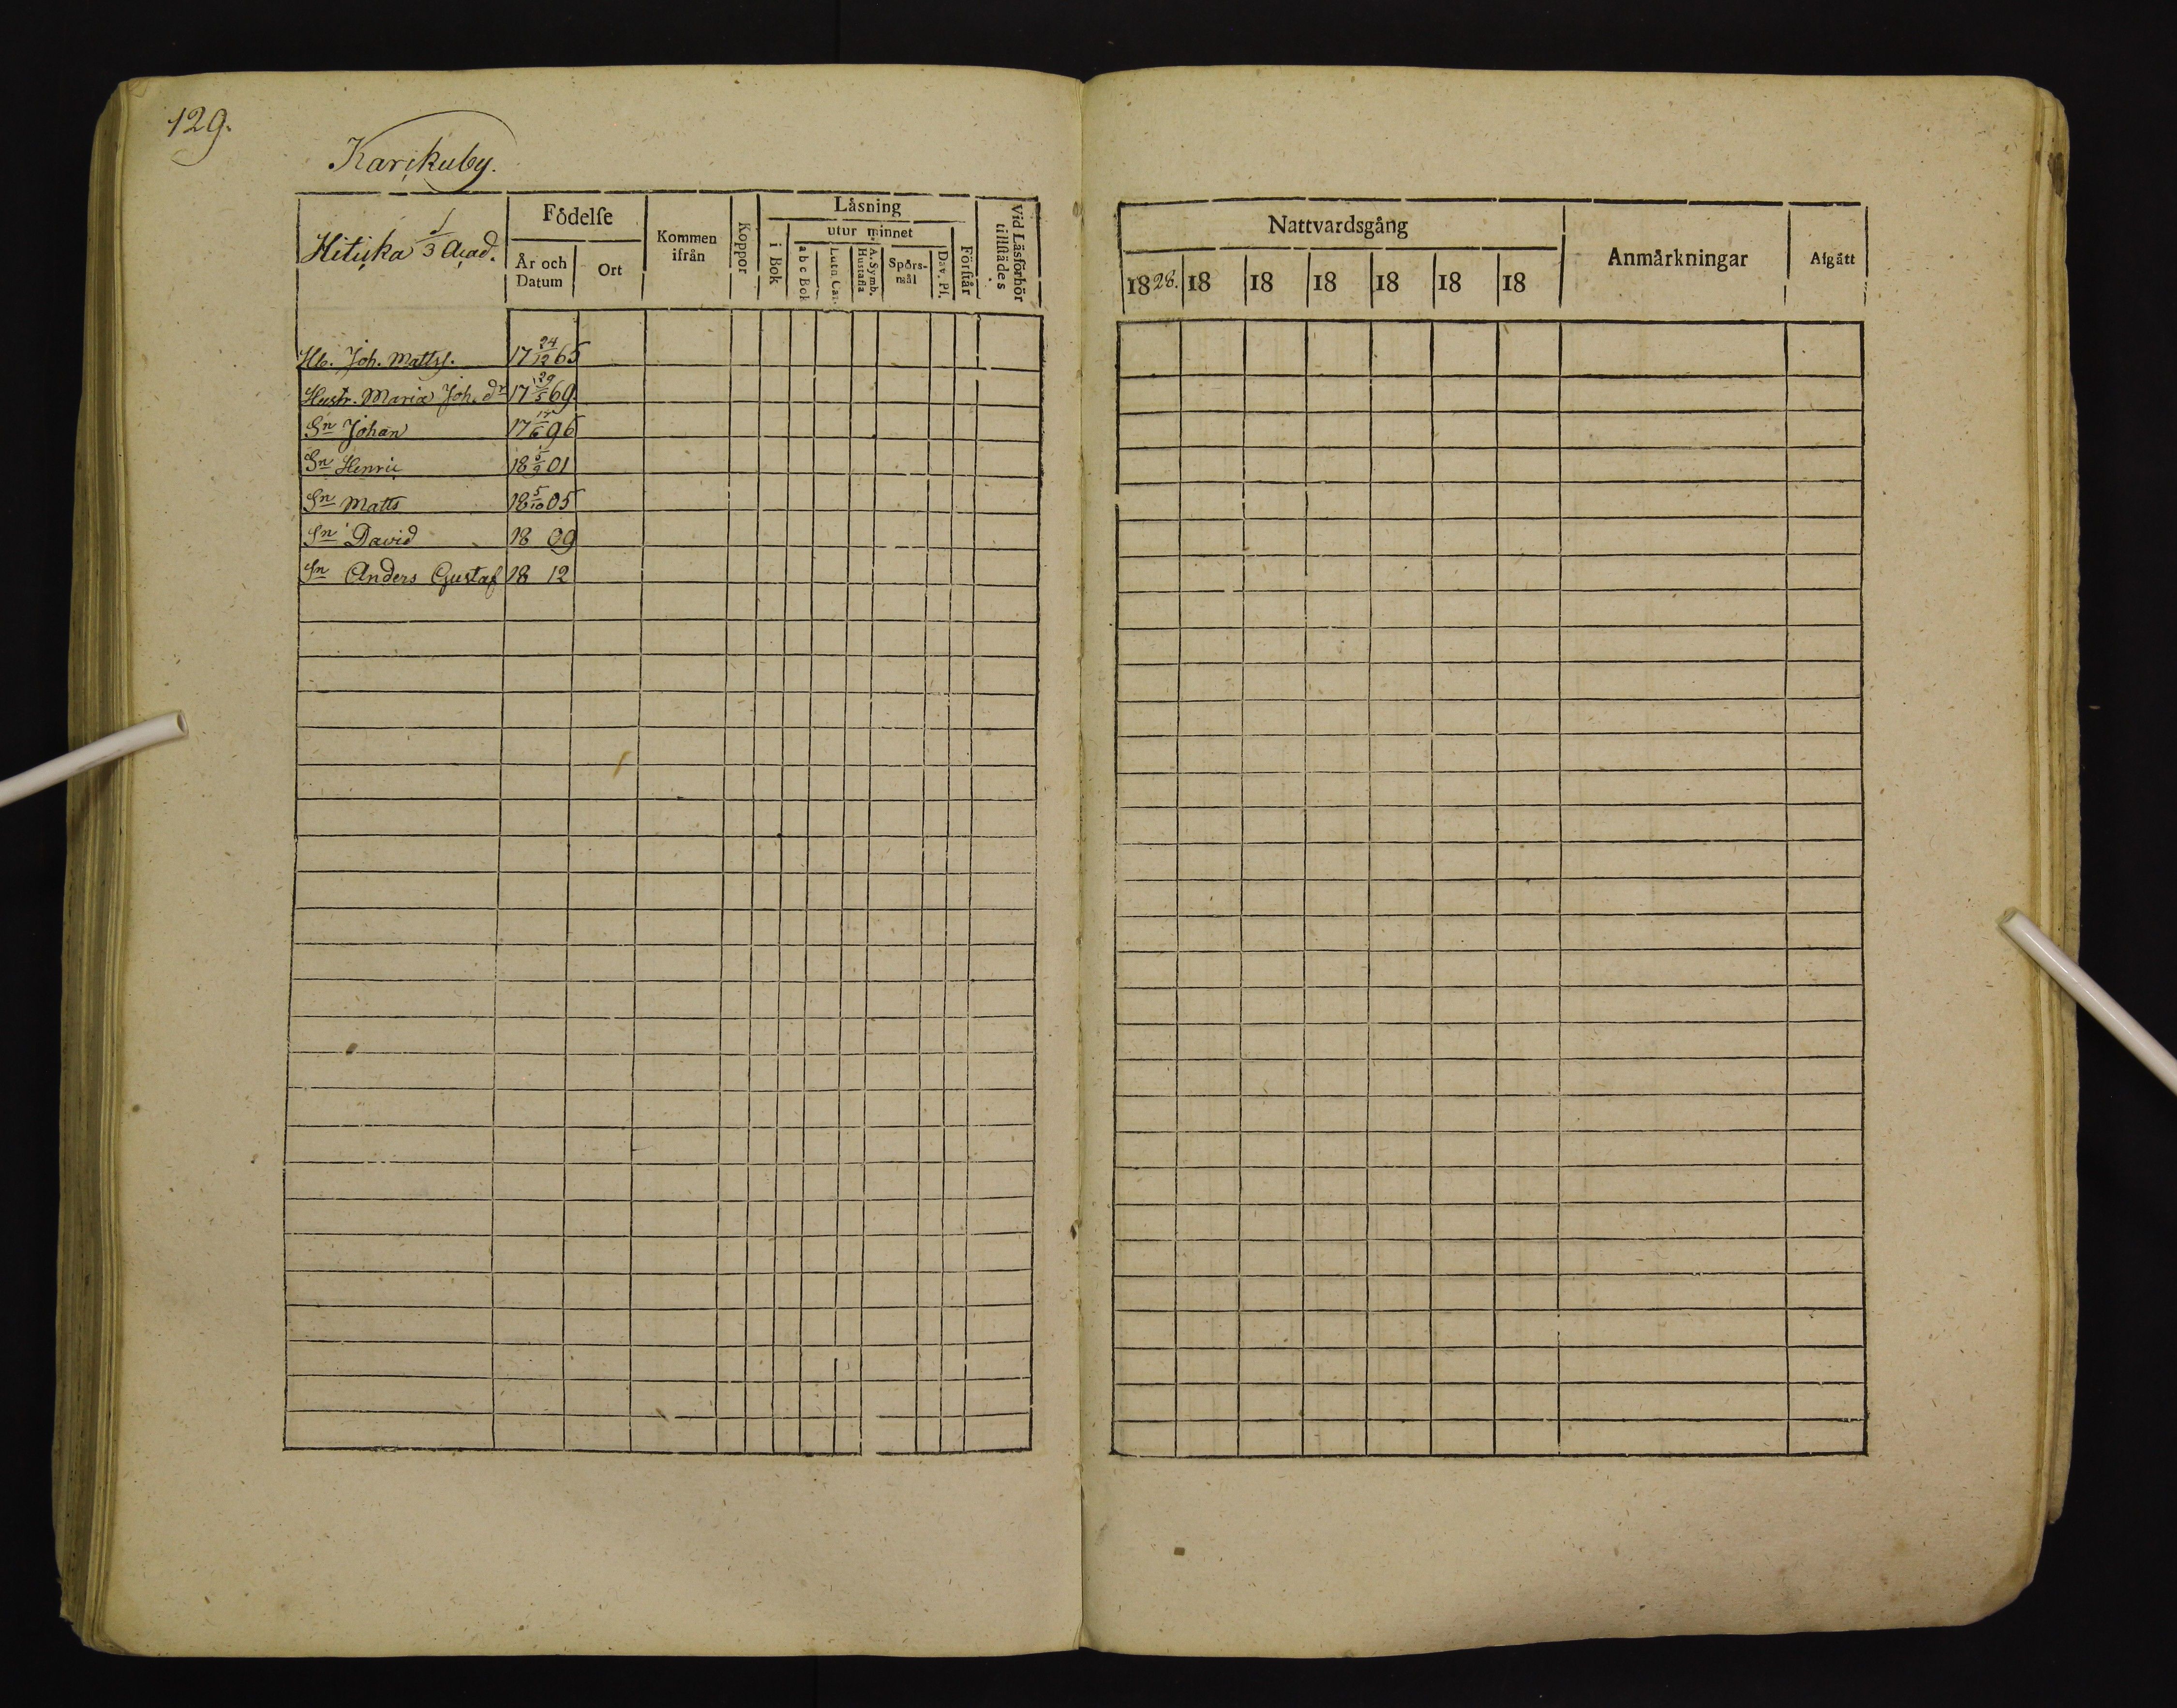 129.
Karikuby.
Hituka 1/3 Acad.
Födelse
År och Datum
Ort
Kommen ifrån
Koppor
Låsning
i Bok
utur minnet
a b c Bok
Luth. Cat.
A. Symb. Hustafla
Spörs-mål
Dav. Ps.
Förstår
Vid Läsförhör tillstädes
Hb. Joh. Mattss. 17 24/12 65
Hustr. Maria Joh. dr 17 29/5 69.
Sn Johan 17 96
Sn Henric 18 01
Sn Matts 18 5/10 05
Sn David 18 09
Sn Anders Gustaf 18 12
Nattvardsgång
1828. 18 18 18 18 18 18
Anmårkningar
Afgått